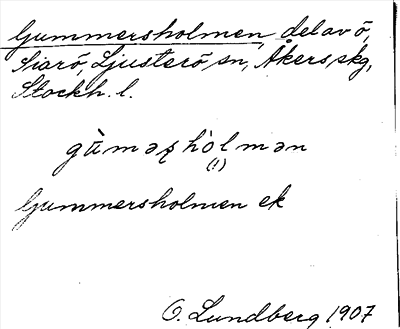 Gummersholmen, del av ö,
Siarö, Ljusterö sn, Åkers skg,
Stockh. l.
gùmaʂhòlmən
(!)
Gummersholmen ek
O. Lundberg 1907